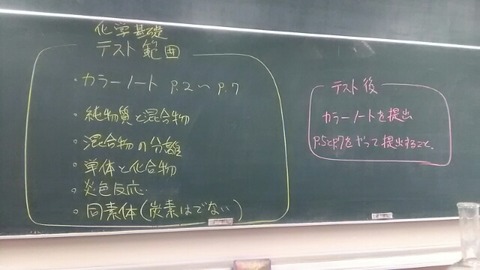 化学基礎
テスト範囲
・カラーノート P.2〜P.7
・純物質と混合物
・混合物の分離
・単体と化合物
・炎色反応
・同素体(炭素はでない)
テスト後
カラーノートを提出
P.5とP.7をやって提出すること。